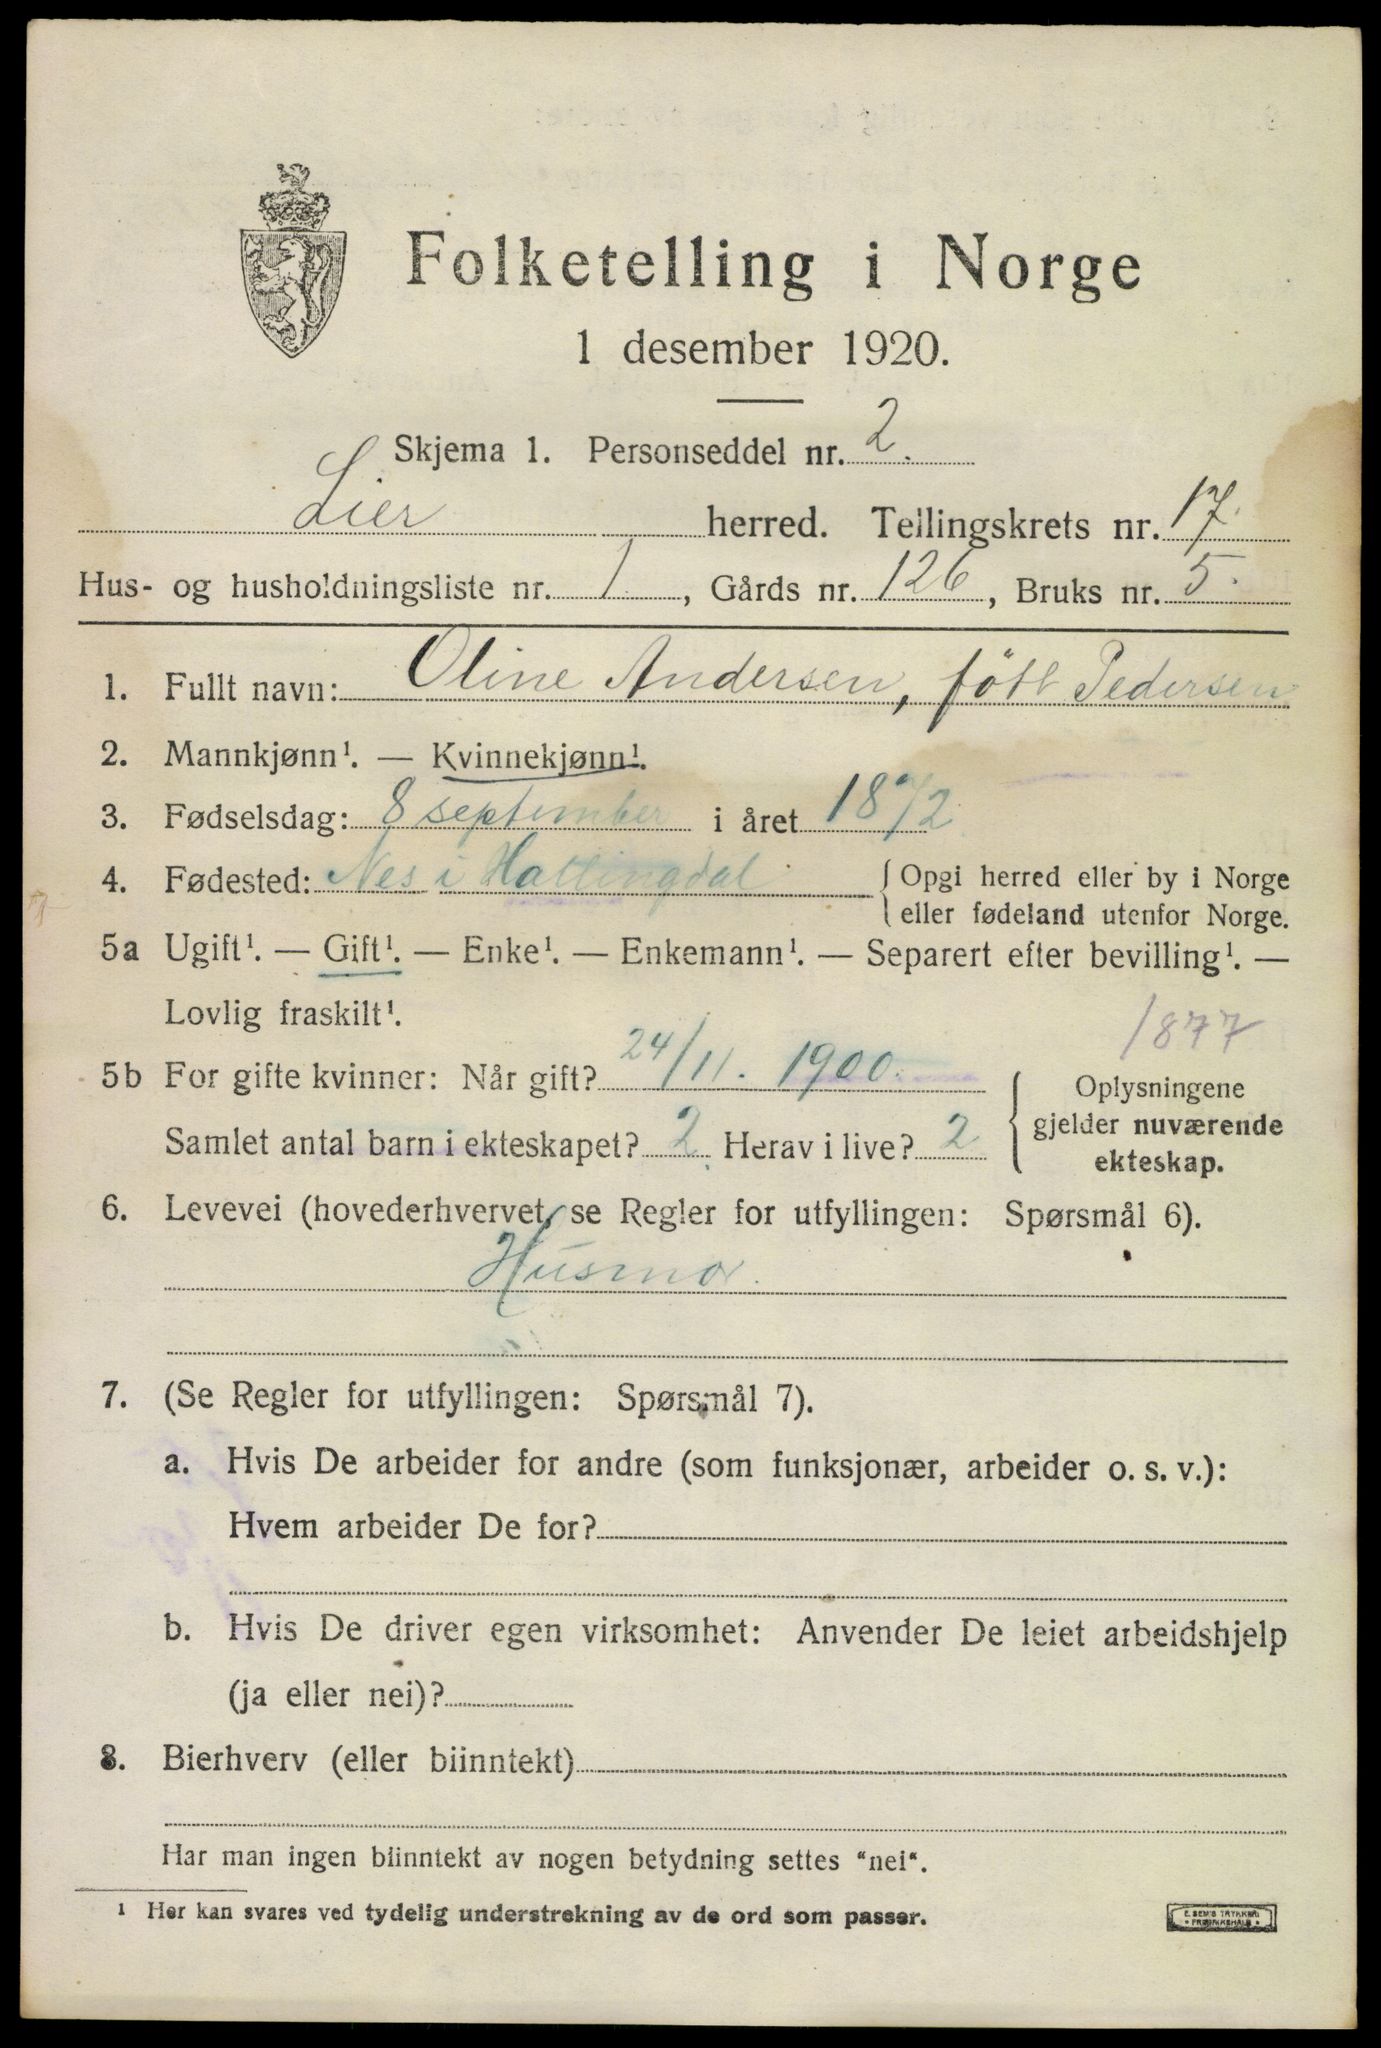 Folketelling i Norge
1 desember 1920.
Skjema 1. Personseddel nr. 2.
Lier herred. Tellingskrets nr. 17.
Hus- og husholdningsliste nr. 1, Gårds nr. 126, Bruks nr. 5.
1. Fullt navn: Oline Andersen, född Pedersen
2. Mannkjønn¹. — Kvinnekjønn¹.
3. Fødselsdag: 8 september i året 1872.
4. Fødested: Nes i Hallingdal { Opgi herred eller by i Norge
eller fødeland utenfor Norge.
5a Ugift¹. — Gift¹. — Enke¹. — Enkemann¹. — Separert efter bevilling¹. —
Lovlig fraskilt¹.
1877
5b For gifte kvinner: Når gift? 24/11. 1900. { Oplysningene
gjelder nuværende
Samlet antal barn i ekteskapet? 2. Herav i live? 2
ekteskap.
6. Levevei (hovederhvervet, se Regler for utfyllingen: Spørsmål 6).
Husmor.
7. (Se Regler for utfyllingen: Spørsmål 7).
a. Hvis De arbeider for andre (som funksjonær, arbeider o. s. v.):
Hvem arbeider De for?
b. Hvis De driver egen virksomhet: Anvender De leiet arbeidshjelp
(ja eller nei)?
8. Bierhverv (eller biinntekt)
Har man ingen biinntekt av nogen betydning settes "nei".
¹ Her kan svares ved tydelig understrekning av de ord som passer.
E. SEM'S TRYKKERI
• FREDRIKSHALD •